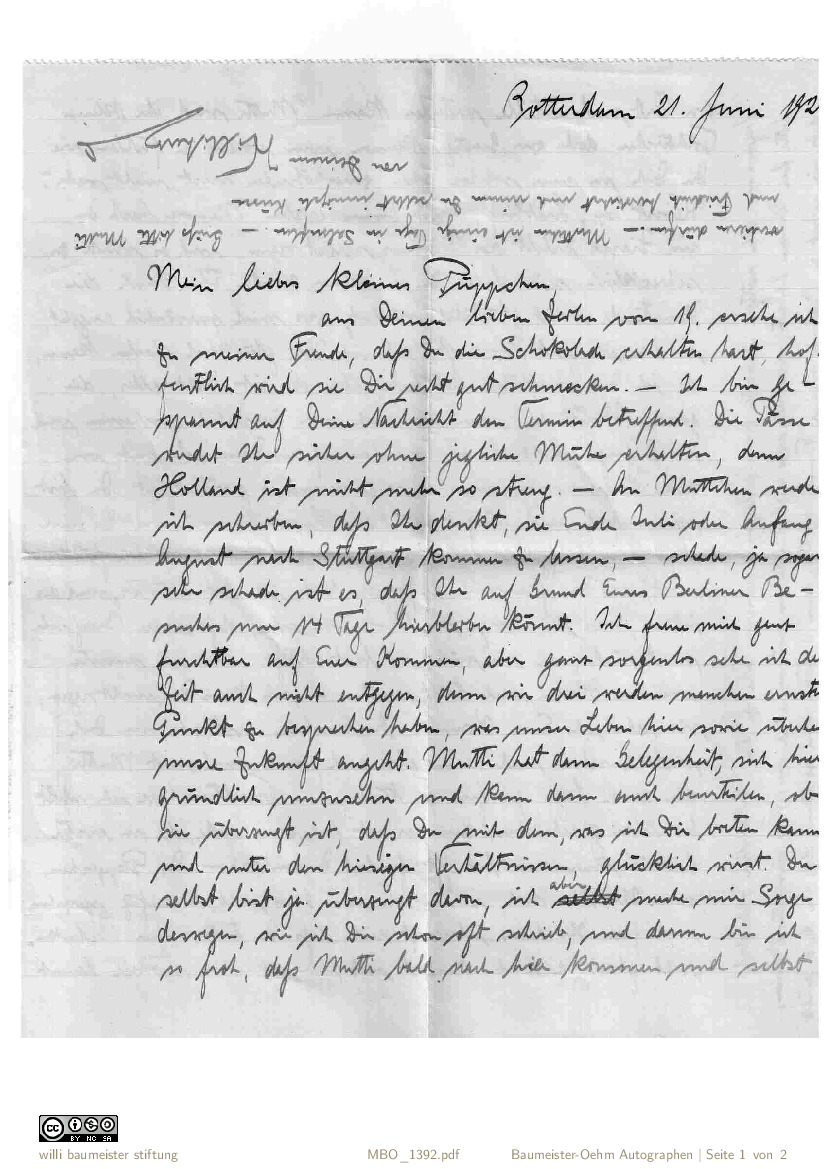 Rotterdam 21. Juni 192
Mein liebes kleines Püppchen,
aus Deinen lieben Zeilen vom 19. ersehe ich
zu meiner Freude, daß Du die Schokolade erhalten hast, hof-
fentlich wird sie Dir recht gut schmecken. — Ich bin ge-
spannt auf Deine Nachricht den Termin betreffend. Die Pässe
werdet Ihr sicher ohne jegliche Mühe erhalten, denn
Holland ist nicht mehr so streng. — An Muttchen werde
ich schreiben, daß Ihr denkt, sie Ende Juli oder Anfang
August nach Stuttgart kommen zu lassen, — schade, ja sogar
sehr schade ist es, daß Ihr auf Grund Eures Berliner Be-
suches nur 14 Tage hierbleiben könnt. Ich freue mich ganz
furchtbar auf Euer Kommen, aber ganz sorgenlos sehe ich de
Zeit auch nicht entgegen, denn wir drei werden manchen ernste
Punkt zu besprechen haben, was unser Leben hier sowie überha
unsre Zukunft angeht. Mutti hat dann Gelegenheit, sich hier
gründlich umzusehn und kann dann auch beurteilen, ob
sie überzeugt ist, daß Du mit dem, was ich Dir bieten kann
und unter den hiesigen Verhältnissen, glücklich wirst. Du
selbst bist ja überzeugt davon, ich aber selbst mache mir Sorge
deswegen, wie ich Dir schon oft schrieb, und darum bin ich
so froh, daß Mutti bald nach hier kommen und selbst
ändern dürfen. — Muttchen ist einige Tage in Salzuflen. — Grüße bitte Mutti
und Friedrich herzlichst und nimm Du selbst innigste Küsse
von Deinem
willi baumeister stiftung
MBO_1392.pdf
Baumeister-Oehm Autographen | Seite 1 von 2
CC BY NC SA